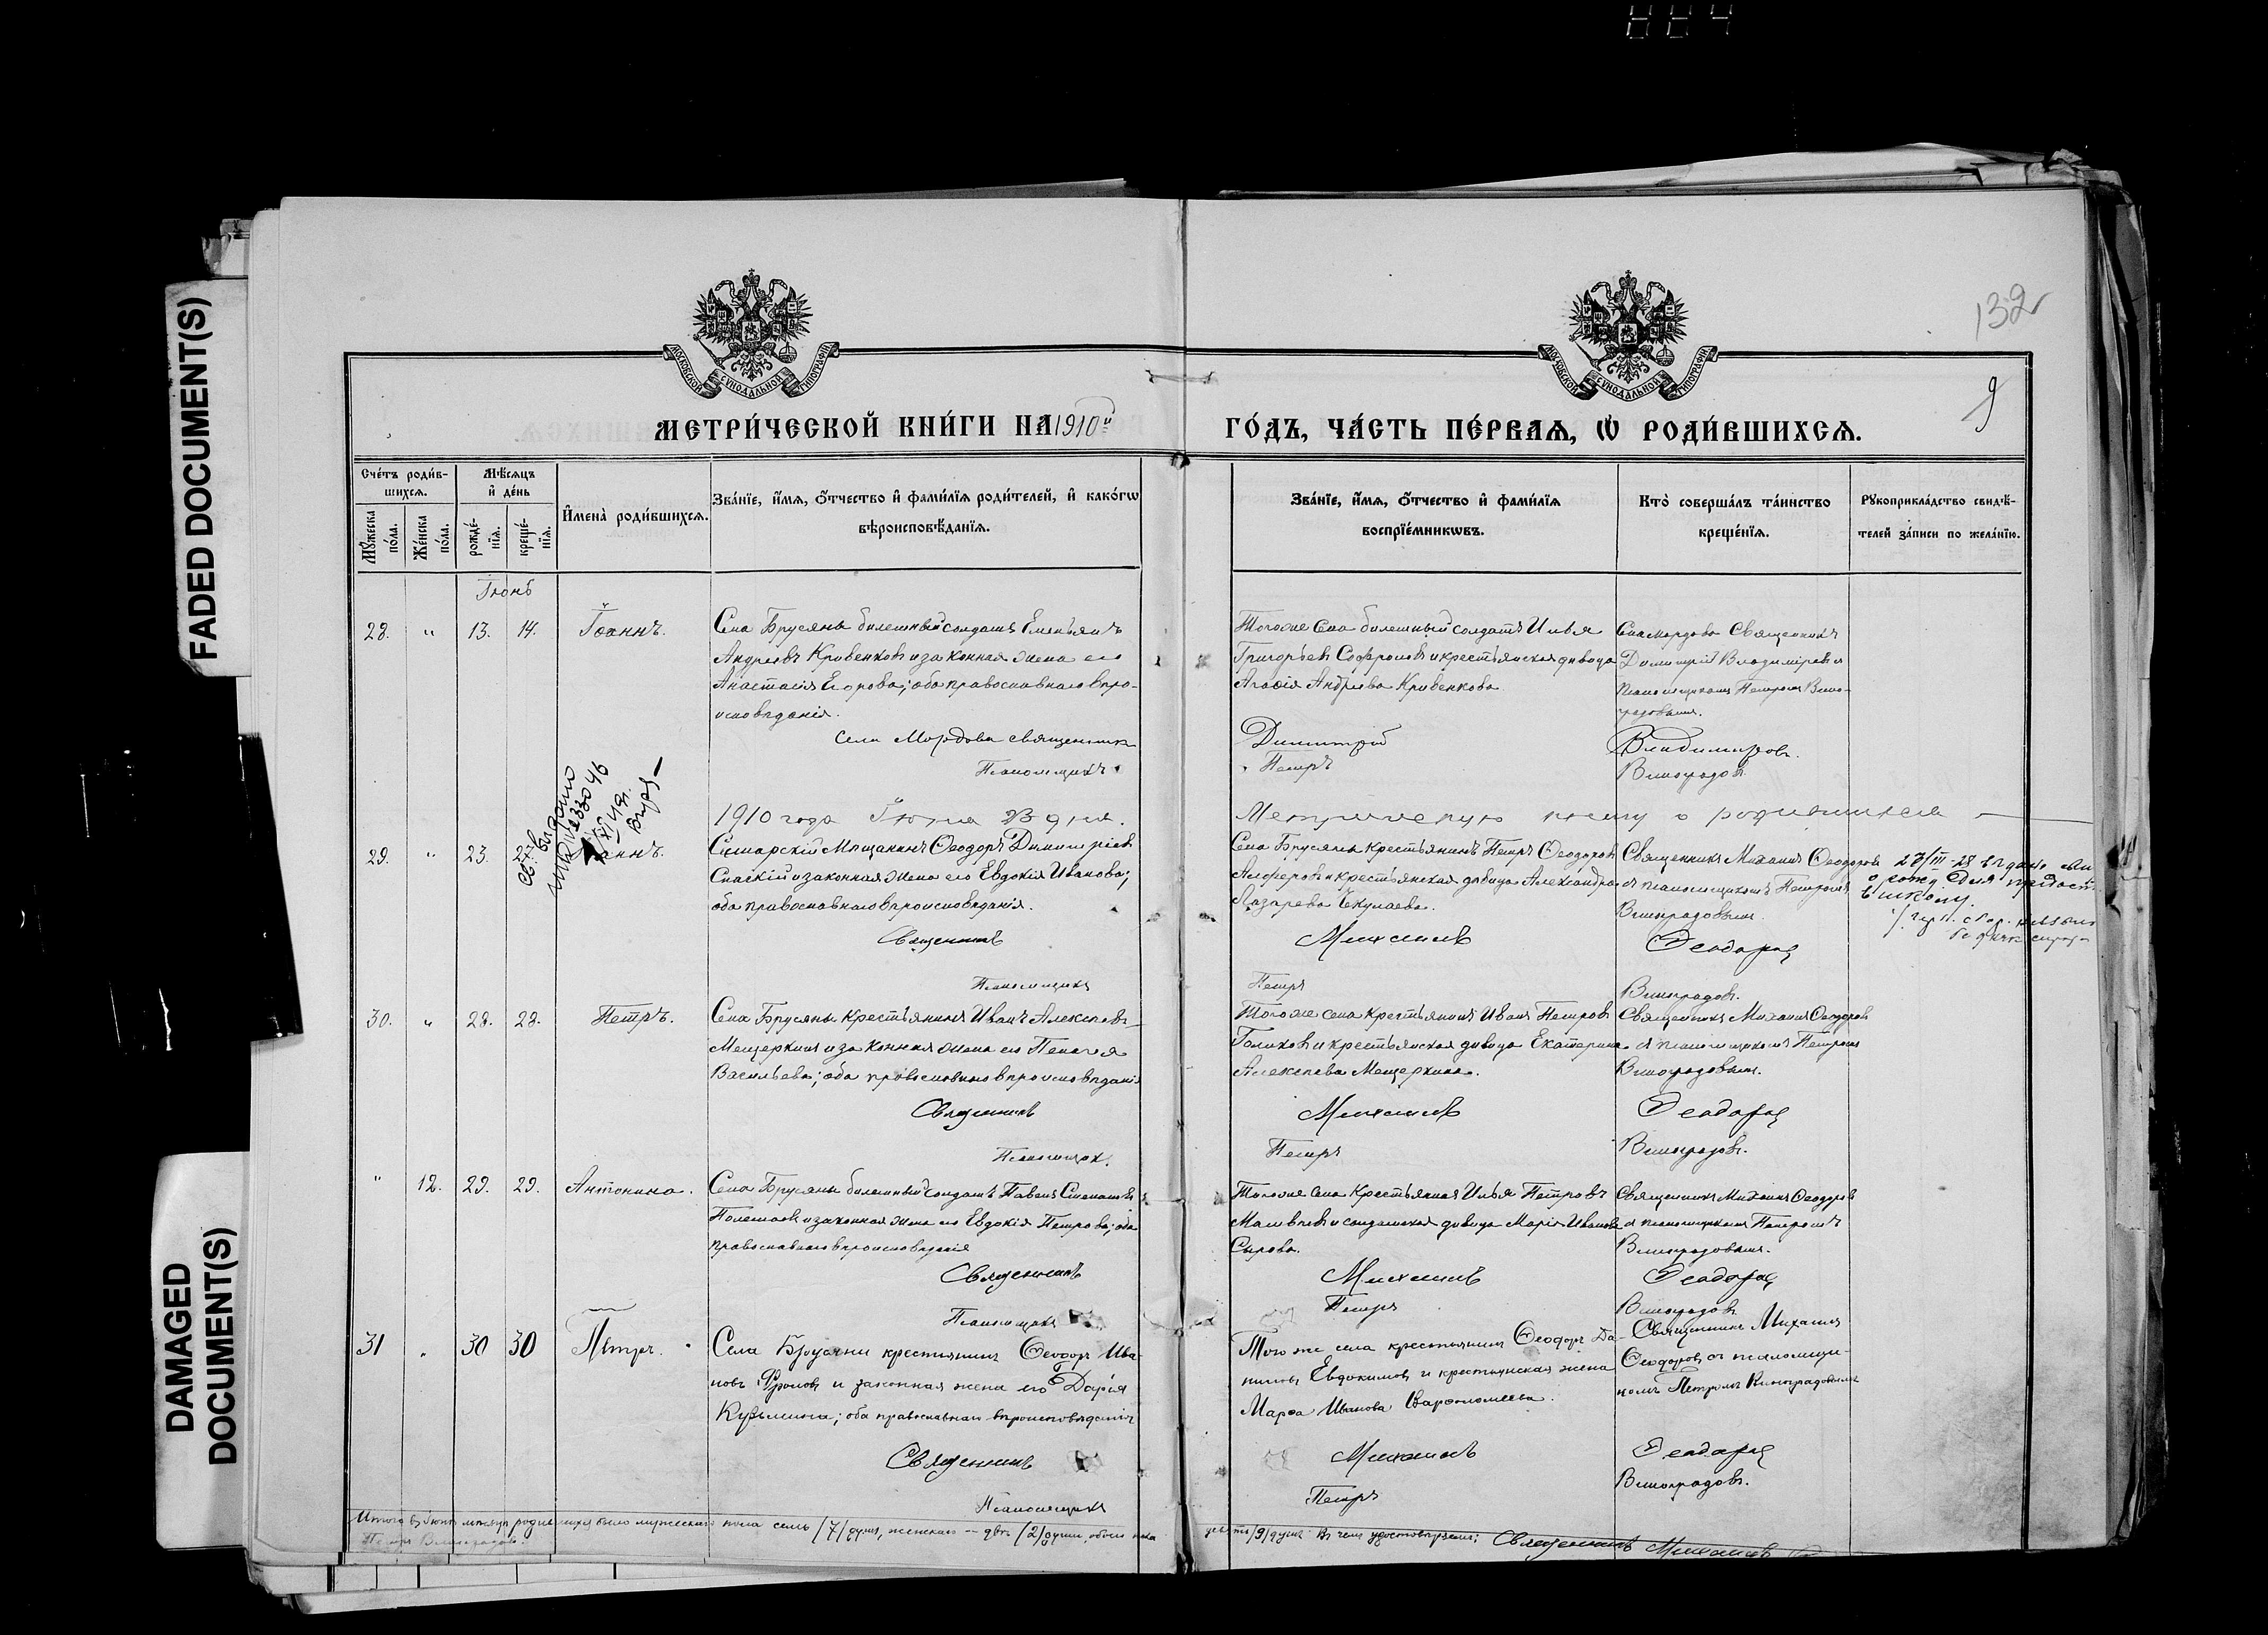 FADED DOCUMENT(S)
DAMAGED
DOCUMENT(S)
132
9
МОСКОВСКОЙ СѴНОДАЛЬНОЙ ТИПОГРАФІИ
МОСКОВСКОЙ СѴНОДАЛЬНОЙ ТИПОГРАФІИ
МЕТРИ́ЧЕСКОЙ КНИ́ГИ НА 1910й
ГО́ДЪ, ЧА́СТЬ ПЕ́РВАѦ, Ѡ РОДИ́ВШИХСѦ.
Сче́тъ роди́в-
шихсѧ.
Мꙋ́жеска по́ла.
Же́нска по́ла.
Мѣ́сѧцъ
и҆ де́нь
рожде́-
нїѧ.
креще́-
нїѧ.
И҆мена̀ роди́вшихсѧ.
Зва́нїе, и҆́мѧ, ѻ҆́тчество и҆ фами́лїѧ роди́телей, и҆ како́гѡ
вѣроисповѣ́данїѧ.
Зва́нїе, и҆́мѧ, ѻ҆́тчество и҆ фами́лїѧ
воспрїе́мникѡвъ.
Кто̀ соверша́лъ та́инство
креще́нїѧ.
Рꙋкоприкла́дство свидѣ́-
телей за́писи по жела́нїю.
Іюнь
28. " 13. 14. Іоаннъ.
Села Брусяны билетный солдатъ Емельянъ
Андреевъ Кривенковъ и законная жена его
Анастасія Егорова; оба православнаго вѣро-
исповѣданія.
Села Мордова священникъ
Псаломщикъ
Тогоже села билетный солдатъ Илья
Григорьевъ Софроновъ и крестьянская дѣвица
Агаѳія Андреева Кривенкова.
Димитрій
Петръ
Села Мордова Священникъ
Димитрій Владиміровъ съ
псаломщикомъ Петромъ Вино-
градовымъ.
Владиміровъ.
Виноградовъ.
1910 года Іюня дня.
Метрическую книгу о родившихся
29. " 23. 23.
Симарскій Мѣщанинъ Ѳеодоръ Димитріевъ
Спаскій и законная жена его Евдокія Иванова;
оба православнаго вѣроисповѣданія.
Священникъ
Псаломщикъ
Села Брусяны крестьянинъ Петръ Ѳеодоровъ
Алферовъ и крестьянская дѣвица Александра
Лазарева
Михаилъ
Петръ
Священникъ Михаилъ Ѳеодоровъ
съ псаломщикомъ Петромъ
Виноградовымъ.
Ѳеодоровъ
Виноградовъ.
27/III-28
о рожд. для
в школу.
30. " 28. 28. Петръ.
Села Брусяны Крестьянинъ Иванъ Алексѣевъ
Мещеркинъ и законная жена его Пелагея
Васильева; оба православнаго вѣроисповѣданія
Священникъ
Псаломщикъ.
Тогоже села Крестьянинъ Иванъ Петровъ
Голиковъ и крестьянская дѣвица Екатерина
Алексѣева Мещеркина.
Михаилъ
Петръ
Священникъ Михаилъ Ѳеодоровъ
съ псаломщикомъ Петромъ
Виноградовымъ.
Ѳеодоровъ
Виноградовъ.
" 12. 29. 29. Антонина.
Села Брусяны билетный солдатъ Павелъ Степановъ
и законная жена его Евдокія Петрова; оба
православнаго вѣроисповѣданія
Священникъ
Псаломщикъ
Тогоже села Крестьянинъ Илья Петровъ
Матвѣевъ и солдатская дѣвица Марія Иванова
Сырова.
Михаилъ
Петръ
Священникъ Михаилъ Ѳеодоровъ
съ псаломщикомъ Петромъ
Виноградовымъ.
Ѳеодоровъ
Виноградовъ
31 " 30 30 Петръ.
Села Брусяны крестьянинъ Ѳеодоръ Ива-
новъ Фроловъ и законная жена его Дарія
Кузьмина; оба православнаго вѣроисповѣданія
Священникъ
Псаломщикъ
Того же села крестьянинъ Ѳеодоръ Да-
ниловъ Евдокимовъ и крестьянская жена
Марѳа Иванова Варѳоломеева.
Михаилъ
Петръ
Священникъ Михаилъ
Ѳеодоровъ съ псаломщи-
комъ Петромъ Виноградовымъ
Ѳеодоровъ
Виноградовъ.
Итого въ Іюнѣ мѣсяцѣ родившихся было мужескаго пола семь /7/ душъ, женскаго — двѣ /2/ души, обоего пола
девять /9/ душъ. Въ чемъ удостовѣряемъ: Священникъ Михаилъ
Петръ Виноградовъ.